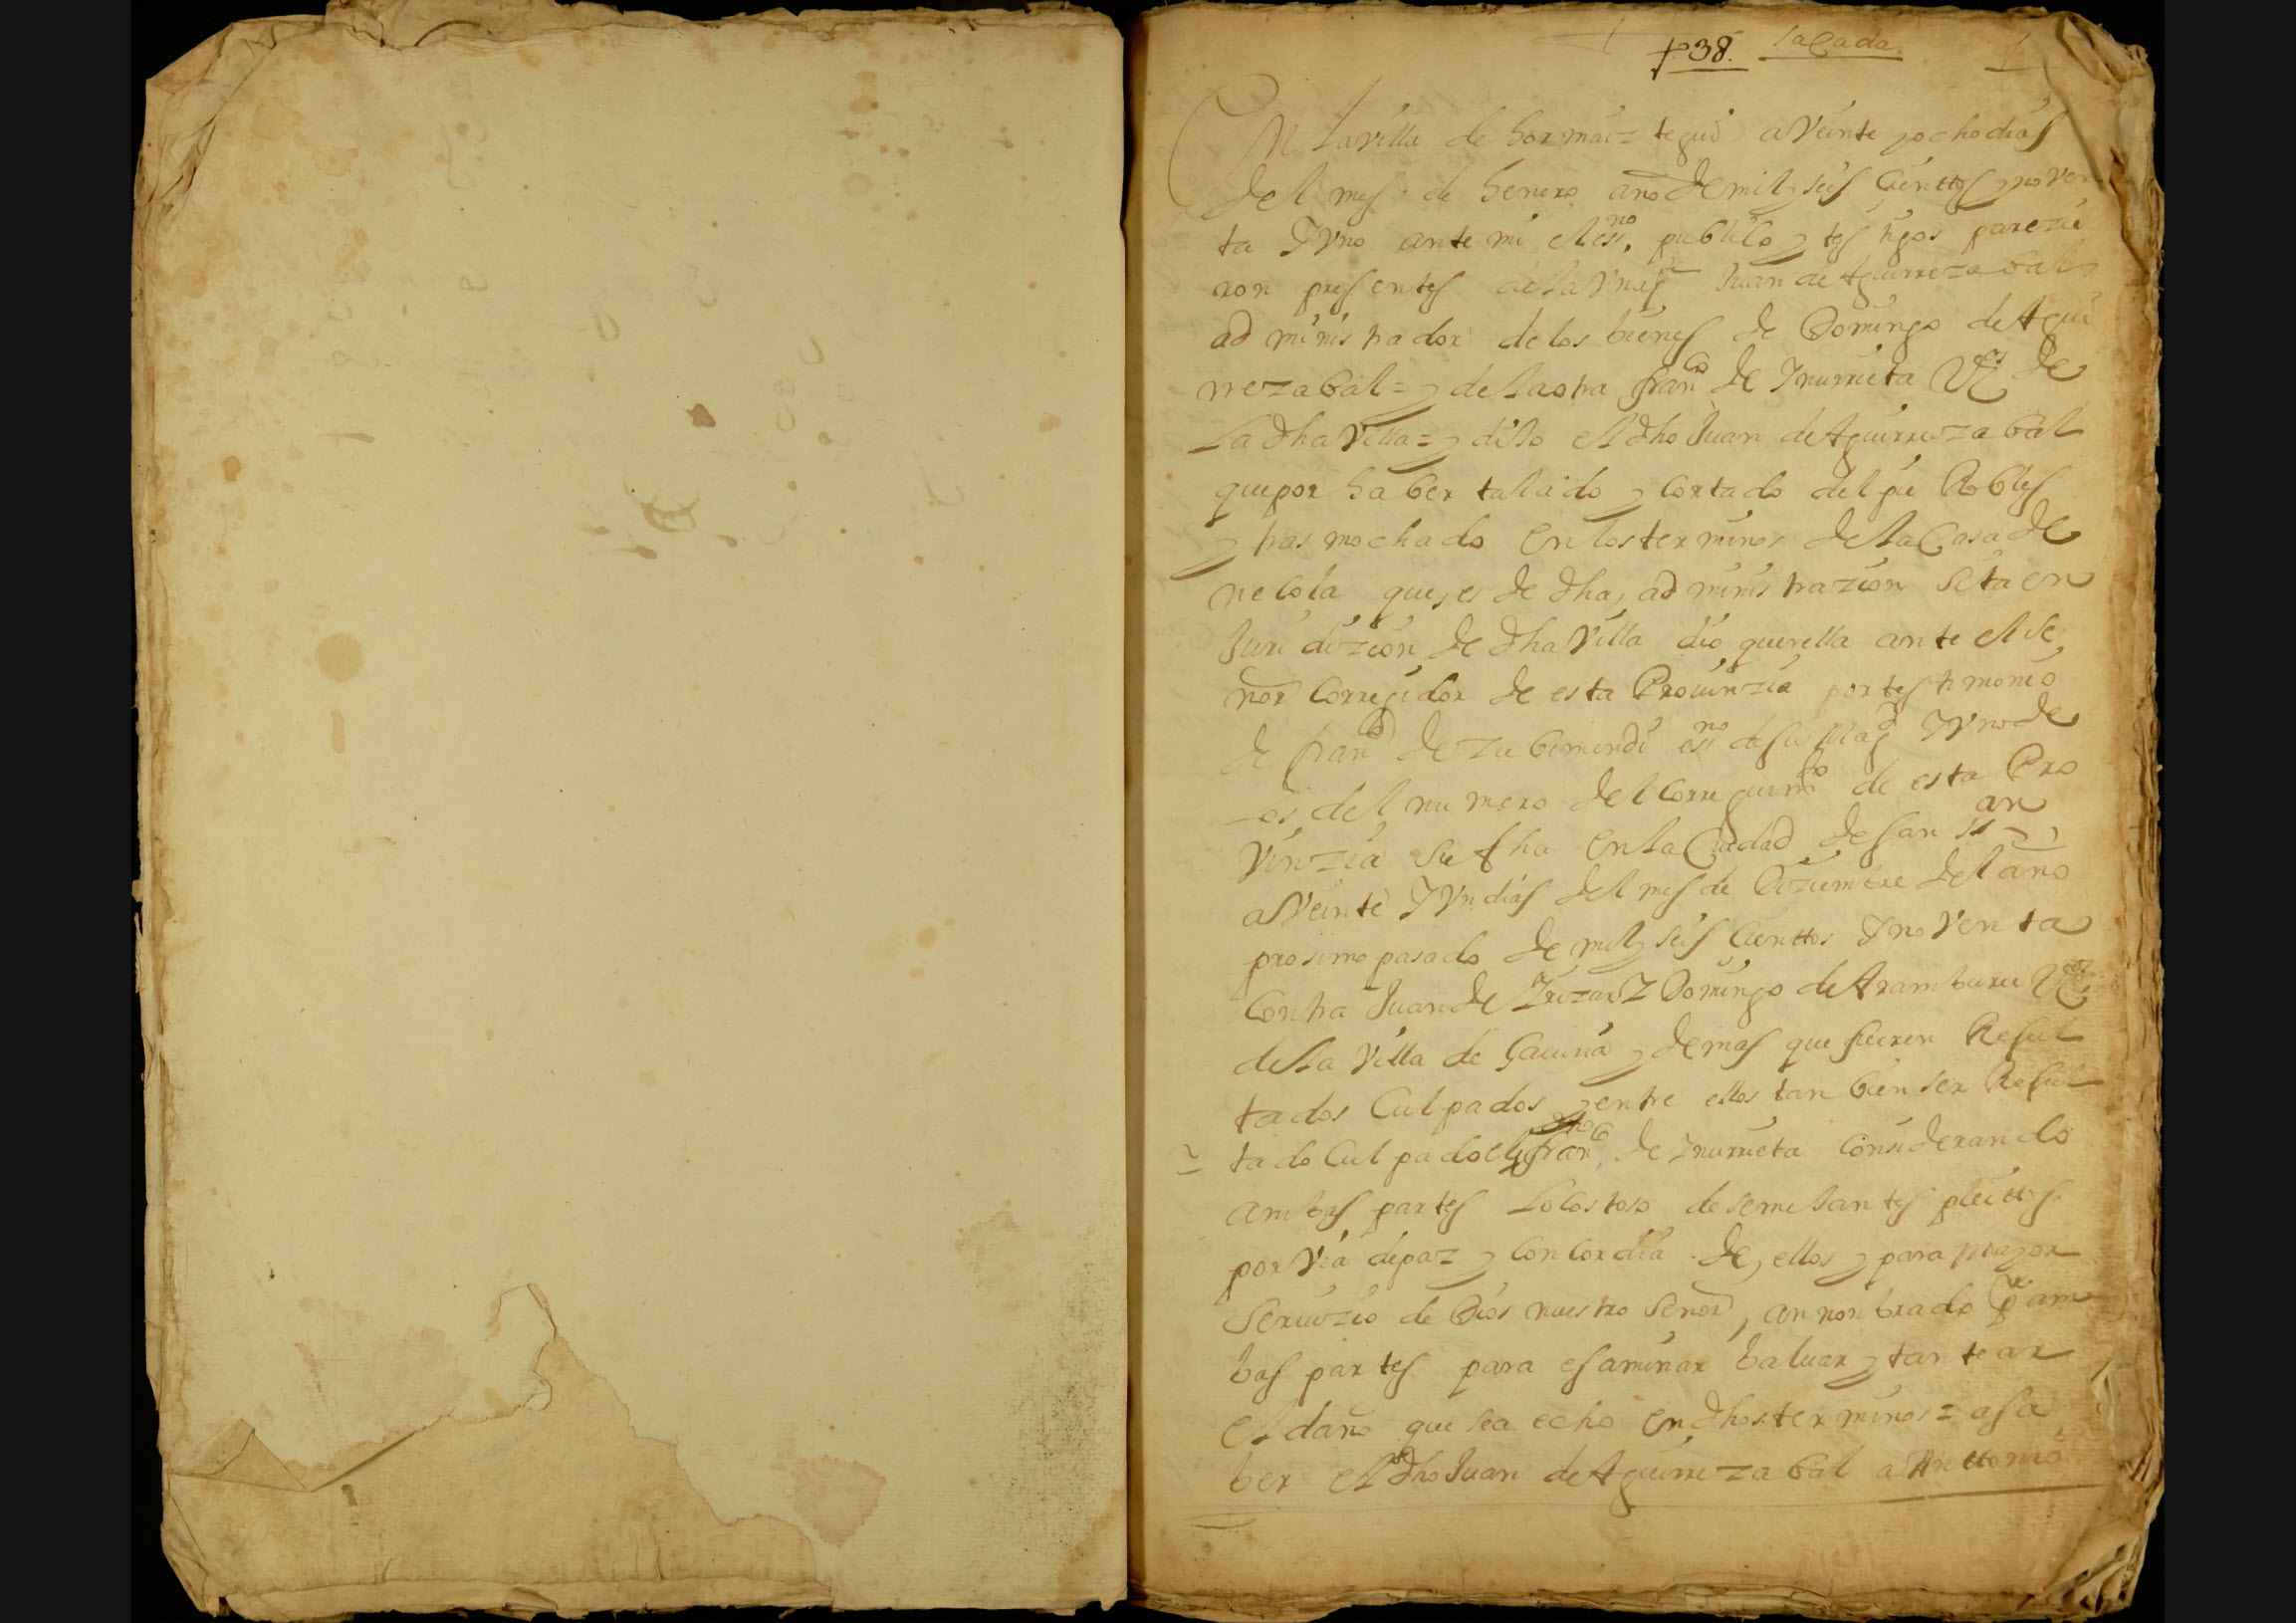 p. 38. sacada 1
En la villa de hormaiz tegui a Veinte y ocho dias
del mes de henero año de mil y seis Cienttos y noven
ta y Vno ante mi el essno. publico y testigos parezie
ron presentes de la Vna pte Juan de Aguirrezabal
administrador de los bienes de Domingo de Agui
rrezabal = y de la otra franco de Inurrieta Vos de
La dha Villa = y dixo el dho Juan de Aguirrezabal
que por haber talado y cortado del pie Robles
y trasmochado en los terminos de la Casa de
necola que es de dha administrazion sita en
Jurisdizion de dha Villa dio querella ante el se
ñor Corregidor de esta Prouinzia por testimonio
de franco de zubimendi essno de su Magd y Vno de
los del numero del Corregimto de esta Pro
Vinzia su fha en la Ciudad de san ssan
a Veinte y Vn dias del mes de Diziembre del año
prosimo pasado de mil y seis Cienttos y noventa
Contra Juan de Irizar y Domingo de Aramburu Vos
de la Villa de Gauiria y demas que fueren Resul
tados Culpados y entre ellos tan bien ser Resul
tado Culpado el dho franco de Inurrieta Considerando
ambas partes lo Costoso de semejantes pleittos
por Via de paz y Concordia de ellos y para mayor
seruizio de Dios nuestro señor, an nonbrado pr am
bas partes para esaminar baluar y tantear
el daño que sea echo en dhos terminos = a sa
ber el dho Juan de Aguirrezabal a Anttonio